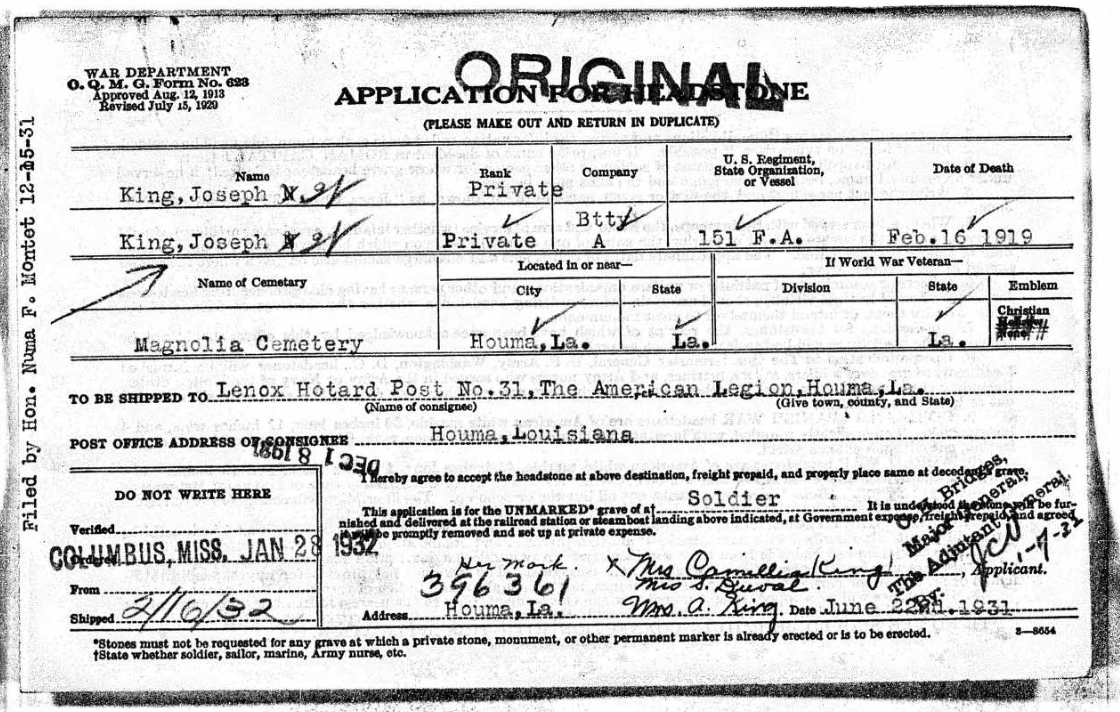 ORIGINAL
WAR DEPARTMENT
O. Q. M. G. Form No. 623
Approved Aug. 12, 1913
Revised July 15, 1929
APPLICATION FOR HEADSTONE
(PLEASE MAKE OUT AND RETURN IN DUPLICATE)
Filed by Hon. Numa F. Montet 12-15-31
Name Rank Company U. S. Regiment, State Organization, or Vessel Date of Death
King, Joseph N. Private
King, Joseph N Private Btty A 151 F.A. Feb. 16 1919
Name of Cemetary Located in or near— If World War Veteran—
City State Division State Emblem
Christian
Hebrew
None
Magnolia Cemetery Houma, La. La. La.
TO BE SHIPPED TO Lenox Hotard Post No.31, The American Legion, Houma, La.
(Name of consignee) (Give town, county, and State)
POST OFFICE ADDRESS OF CONSIGNEE Houma, Louisiana
DEC 18 1931
I hereby agree to accept the headstone at above destination, freight prepaid, and properly place same at decedent's grave.
DO NOT WRITE HERE
This application is for the UNMARKED* grave of a† Soldier It is understood the stone will be fur-
nished and delivered at the railroad station or steamboat landing above indicated, at Government expense, freight prepaid, and agreed
it will be promptly removed and set up at private expense.
C. H. Bridges,
Major General,
The Adjutant General
By: JCW
1-7-31
Verified
Ordered
COLUMBUS, MISS. JAN 28 1932
From
Shipped 2/16/32
Her Mark. X Mrs Camillia King, Applicant.
396361 Mrs S. Duval.
Address Houma, La. Mrs. A. King Date June 22nd. 1931
*Stones must not be requested for any grave at which a private stone, monument, or other permanent marker is already erected or is to be erected.
†State whether soldier, sailor, marine, Army nurse, etc.
3—8654